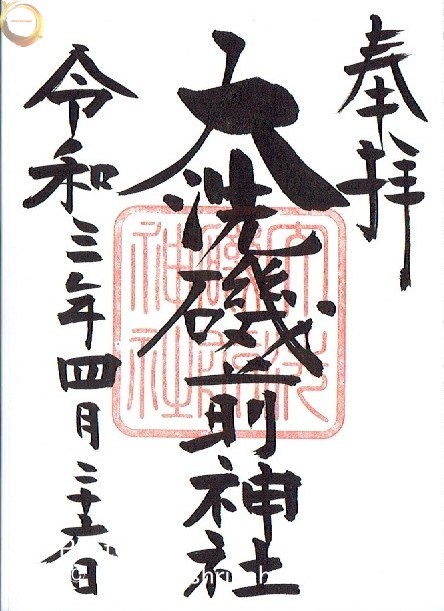 奉拝
大洗磯前神社
令和三年四月二十六日
大洗
磯前
神社